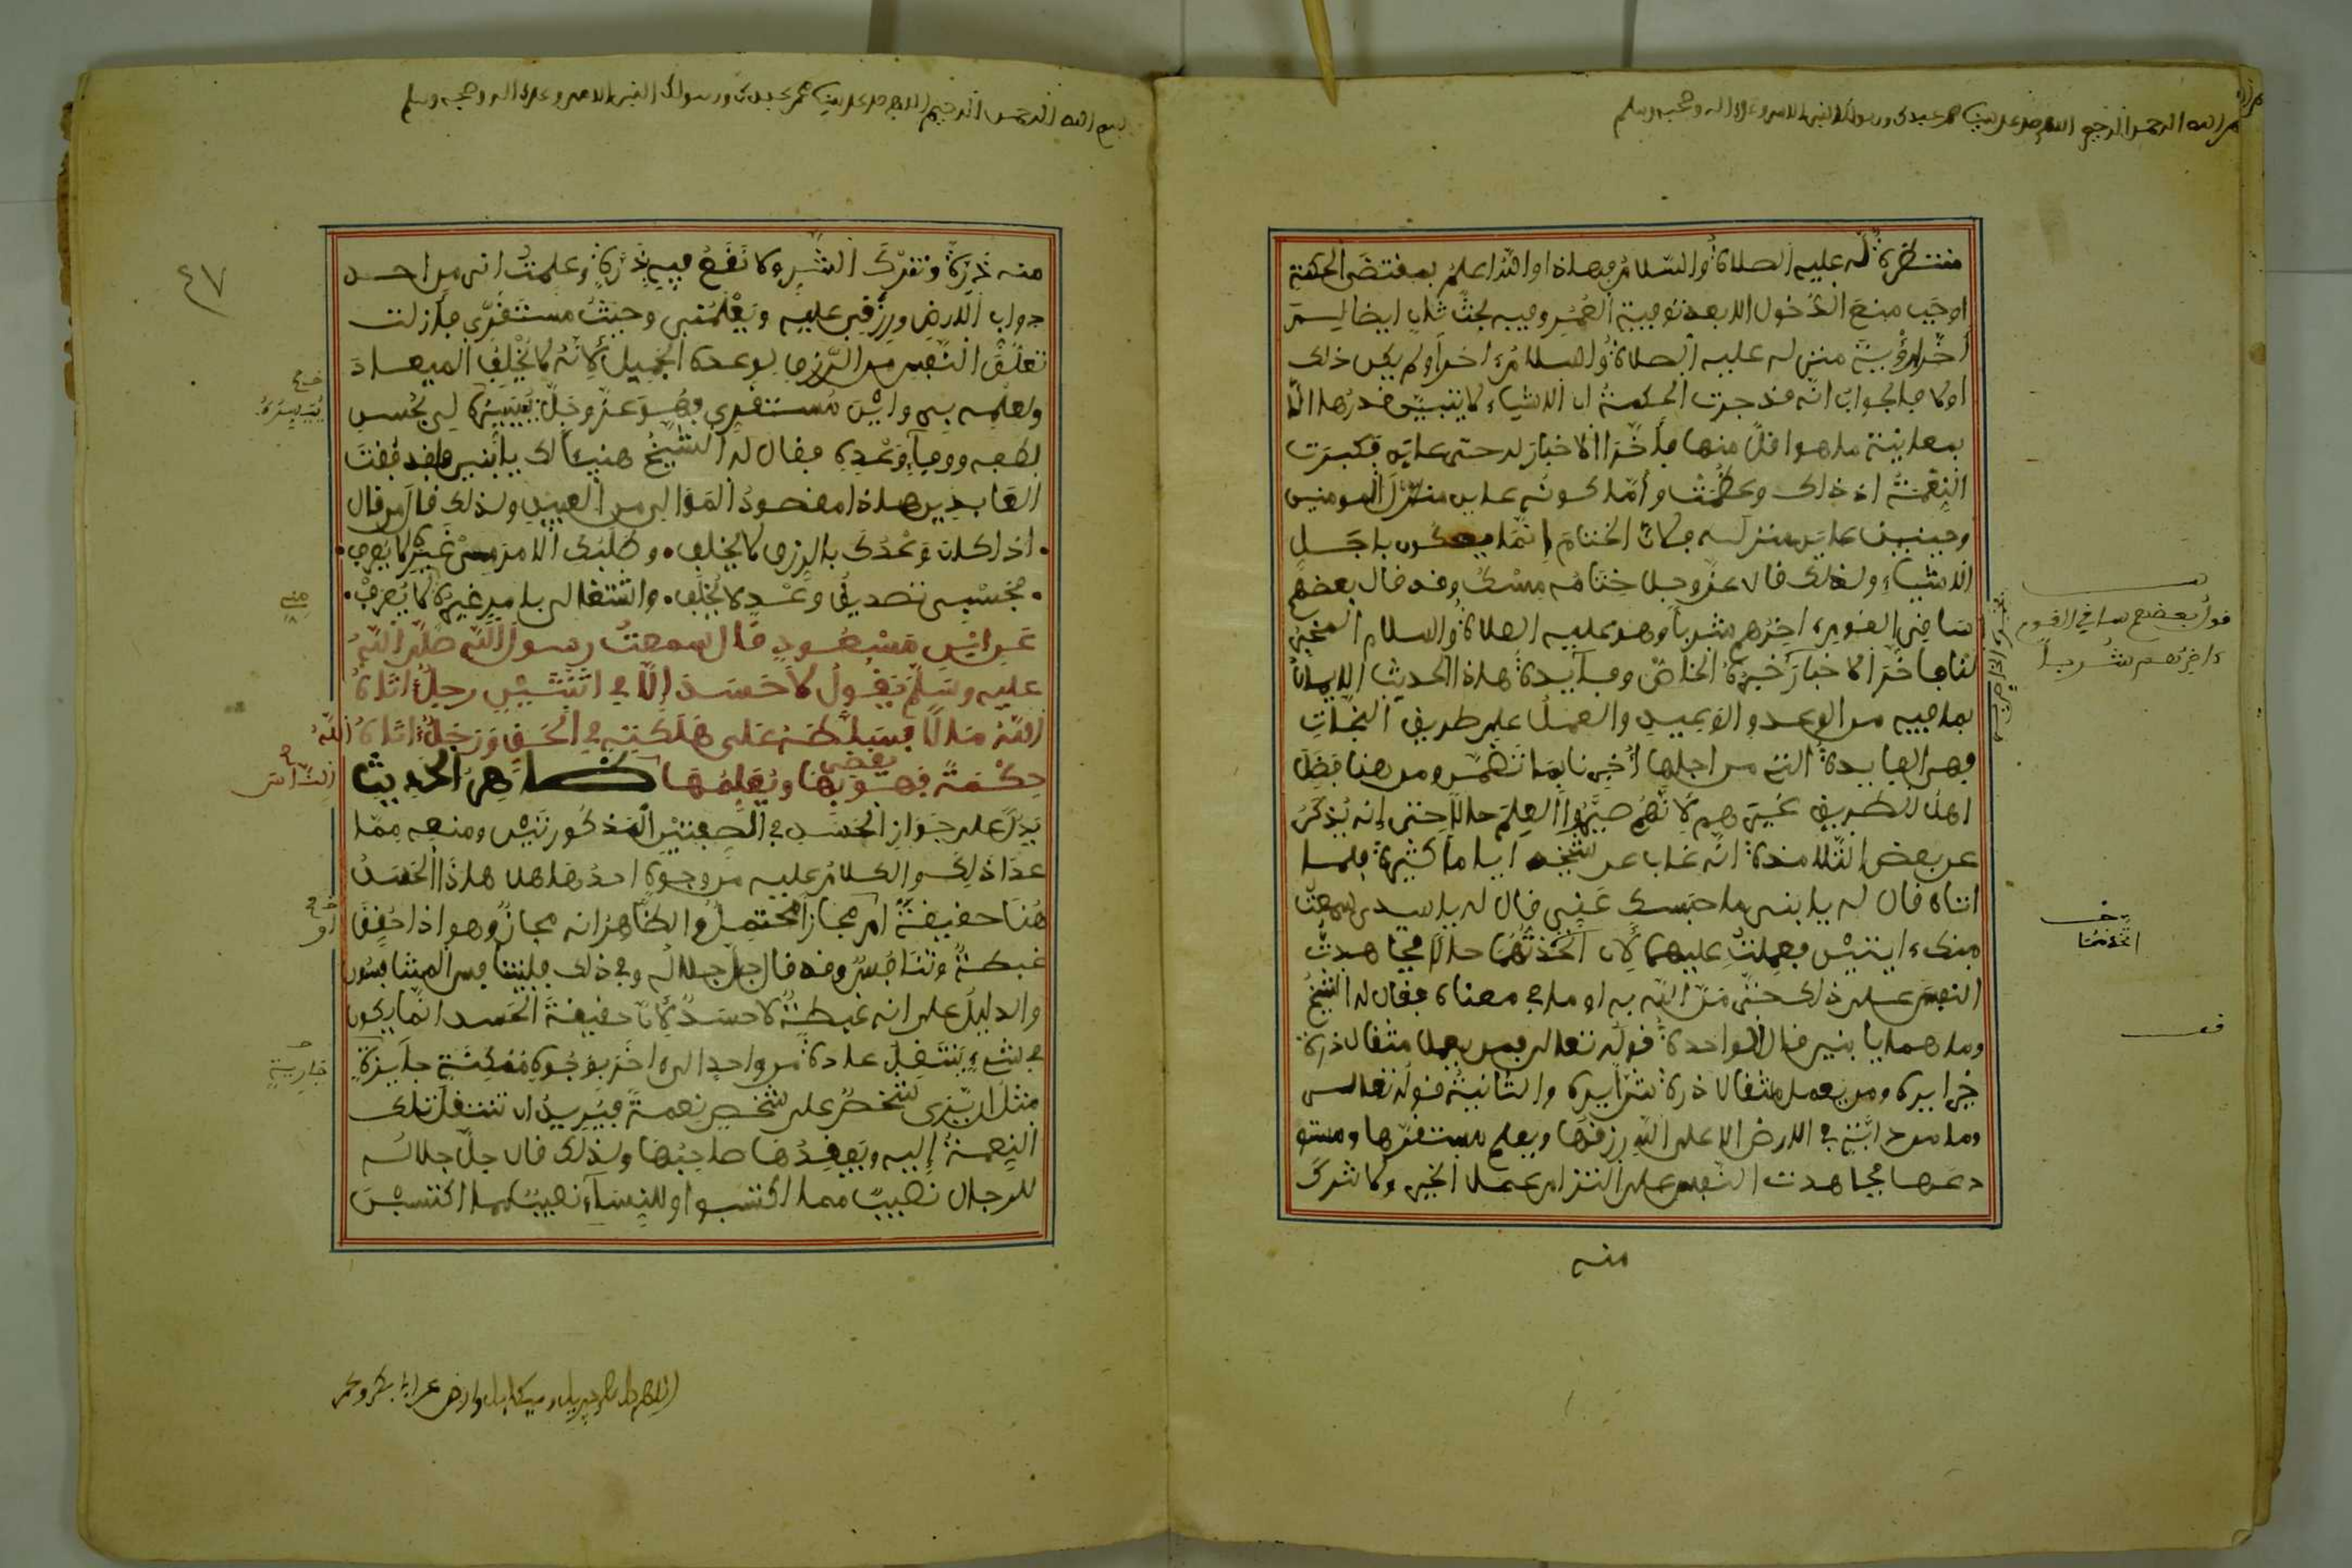 بسم الله الرحمن الرحيم اللهم صل على سيدنا محمد عبدك ورسولك النبي الامي وعلى اله وصحبه وسلم
منتظرة له عليه الصلاة والسلام فهذا والله اعلم بمقتضى الحكمة
اوجب منع الدخول الا بعد توفية العمر وفيه بحث ثان ايضا لِمَ
أخر رؤية منزله عليه الصلاة والسلام ءاخرا ولم يكن ذلك
اولا فالجواب انه قد جرت الحكمة ان الاشياء لا يتبين قدرها الا
بمعاينة ما هو اقل منها فأخر الاخبار له حتى عاين فكبرت
النعمة اذ ذاك وعظمت وأما كونه عاين منزل المومنين
وحينئذ عاين منزله فكان الختام انما يكون باجل
الاشياء ولذلك قال عز وجل ختامه مسك وقد قال بعضهم
ساقي القوم ءاخرهم شربا وهو عليه الصلاة والسلام المخبر
لنا فأخر الاخبار خبره الخاص وفائدة هذا الحديث الايمان
بما فيه من الوعد والوعيد والعمل على طريق النجاة
فهي الفايدة التي من اجلها أُخبرنا بما تضمن ومن هنا فضل
اهل الطريق غيرهم لانهم صيروا العلم حالا حتى إنه يُذكر
عن بعض التلامذة انه غاب عن شيخه اياما كثيرة فلما
اتاه قال له يا بني ما حبسك عني قال له يا سيدي سمعت
منك ءايتين فعملت عليهما لان اتخذتهما حالا فجاهدت
النفس على ذلك حتى منّ الله به او ما في معناه فقال له الشيخ
وما هما يا بني قال الواحدة قوله تعالى فمن يعمل مثقال ذرة
خيرا يره ومن يعمل مثقال ذرة شرا يره والثانية قوله تعالى
وما من دابة في الارض الا على الله رزقها ويعلم مستقرها ومستو
دعها فجاهدت النفس على التزام عمل الخير ولا تترك
منه
قول بعضهم ساقي القوم
ءاخرهم شربا
اتخذتها
بسم الله الرحمن الرحيم اللهم صل على سيدنا محمد عبدك ورسولك النبي الامي وعلى اله وصحبه وسلم
٤٧
منه ذرة وتترك الشر ولا تقع فيه ذرة وعلمت اني من احد
دواب الارض ورزقي عليه ويعلمني وحيث مستقري فازلت
تعلق النفس من الرزق لوعده الجميل لانه لا يخلف الميعاد
ولعلمه بي واين مستقري فهو عز وجل ييسره لي بحسن
لطفه ووفاء وعده فقال له الشيخ هنيئا لك يا بني فقد فقت
العابدين هذا مقصود الموالي من العبيد ولذلك قال من قال
اذا كان وعدك بالرزق لا يخلف وطلبك الامر من غيره لا يعرف
فحسبي تصديق وعد لا يخلف واشتغالي بامر غيره لا يُصرف
عن ابن مسعود قال سمعت رسول الله صلى الله
عليه وسلم يقول لا حسد إلا في اثنتين رجل اتاه
الله مالا فسلطه على هلكته في الحق ورجل اتاه الله
حكمة فهو يقضي بها ويعلمها الناس ظاهر الحديث
يدل على جواز الحسد في الصفتين المذكورتين ومنعه مما
عدا ذلك والكلام عليه من وجوه احدها هل هذا الحسد
هنا حقيقة أم مجاز محتمل والظاهر انه مجاز وهو اذا حقق
غبطة وتنافس وقد قال جل جلاله وفي ذلك فليتنافس المتنافسون
والدليل على انه غبطة لا حسد لان حقيقة الحسد انما يكون
في شيء ينتقل عادة من واحد الى ءاخر بوجوه ممكنة جايزة
مثل ان يرى شخص على شخص نعمة فيريد ان تنتقل تلك
النعمة إليه ويفقدها صاحبها ولذلك قال جل جلاله
للرجال نصيب مما اكتسبوا وللنساء نصيب مما اكتسبن
ييسره
جارية
اللهم صل على جبريل وميكايل وارض عن ابي بكر وعمر